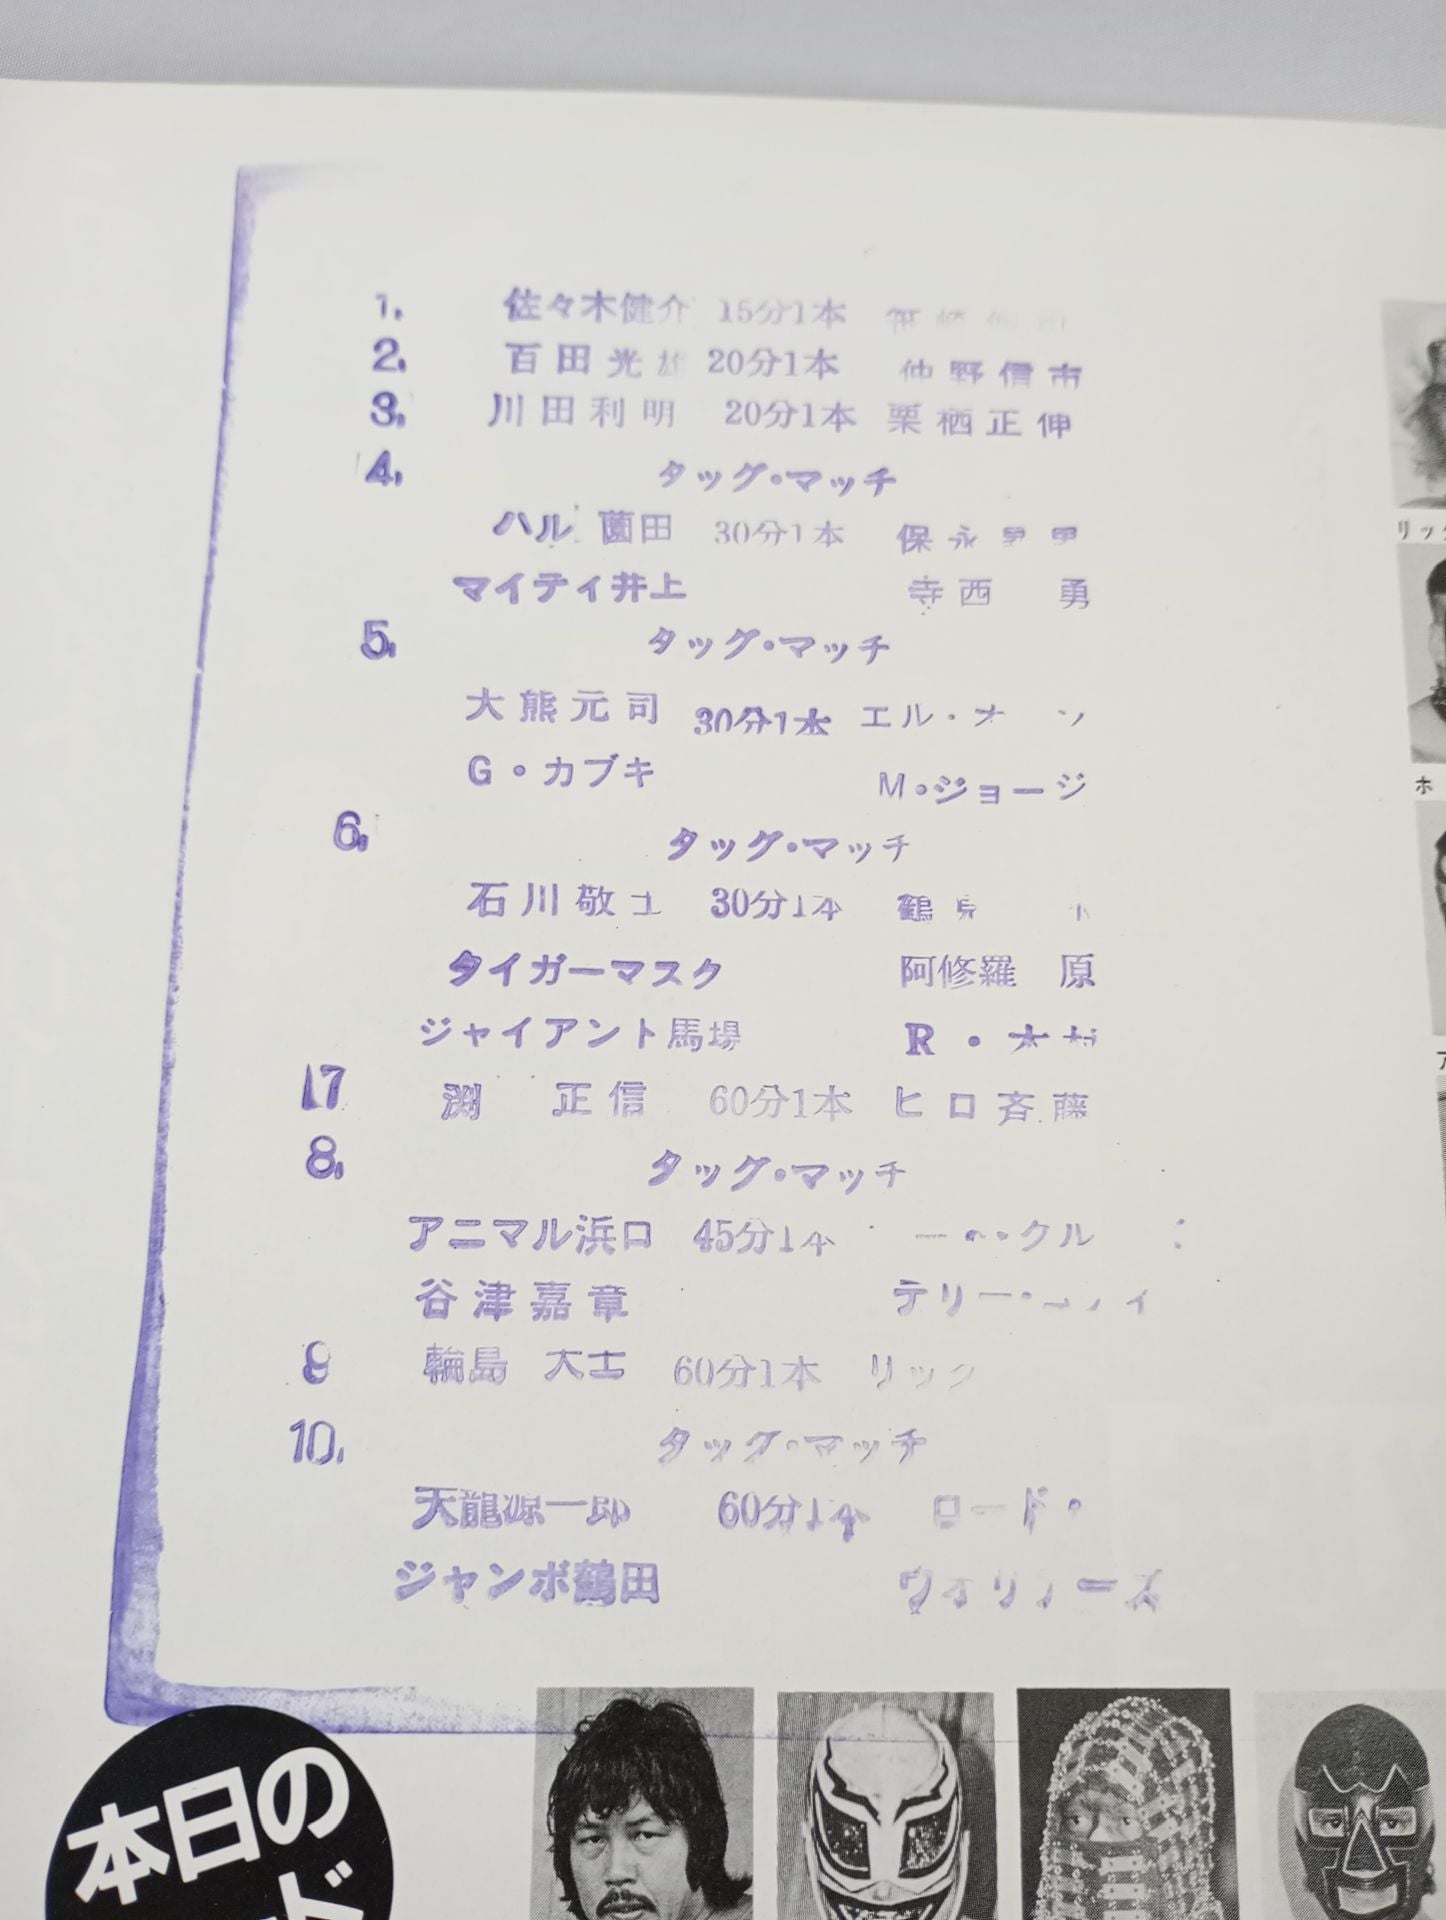 1. 佐々木健介 15分1本
2. 百田光雄 20分1本 仲野信市
3. 川田利明 20分1本 栗栖正伸
4. タッグ・マッチ
ハル 薗田 30分1本 保永昇男
マイティ井上 寺西 勇
5. タッグ・マッチ
大熊元司 30分1本 エル・
G・カブキ M・ジョージ
6. タッグ・マッチ
石川敬士 30分1本 鶴見
タイガーマスク 阿修羅 原
ジャイアント馬場 R・木村
7 渕 正信 60分1本 ヒロ斉藤
8. タッグ・マッチ
アニマル浜口 45分1本
谷津嘉章 テリー・
9 輪島 大士 60分1本 リック
10. タッグ・マッチ
天龍源一郎 60分1本 ロード・
ジャンボ鶴田 ウォリアーズ
リッ
ホ
ア
本日の
ド